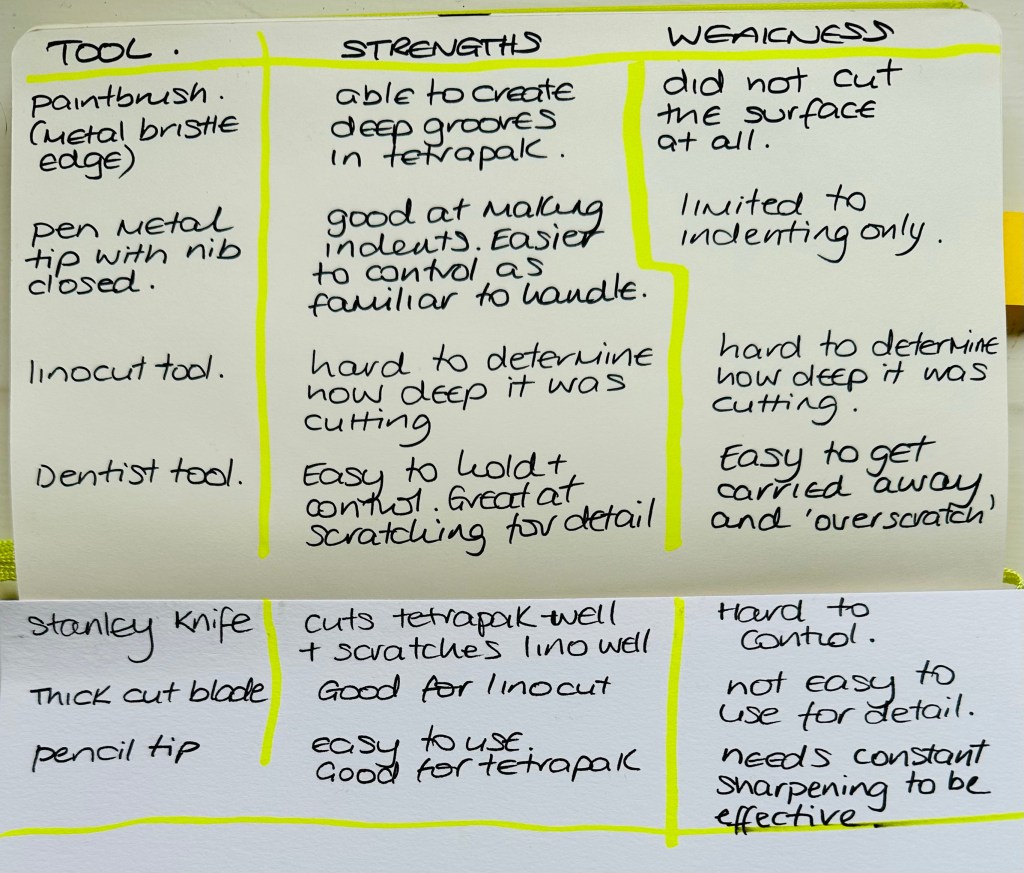 TOOL.
STRENGTHS
WEAKNESS
paintbrush.
(Metal bristle
edge)
able to create
deep grooves
in tetrapak.
did not cut
the surface
at all.
pen metal
tip with nib
closed.
good at making
indents. Easier
to control as
familiar to handle.
limited to
indenting only.
linocut tool.
hard to determine
how deep it was
cutting
hard to determine
how deep it was
cutting.
Dentist tool.
Easy to hold +
control. Great at
scratching for detail
Easy to get
carried away
and 'overscratch'
Stanley Knife
cuts tetrapak well
+ scratches lino well
Hard to
control.
Thick cut blade
Good for linocut
not easy to
use for detail.
pencil tip
easy to use.
Good for tetrapak
needs constant
sharpening to be
effective.